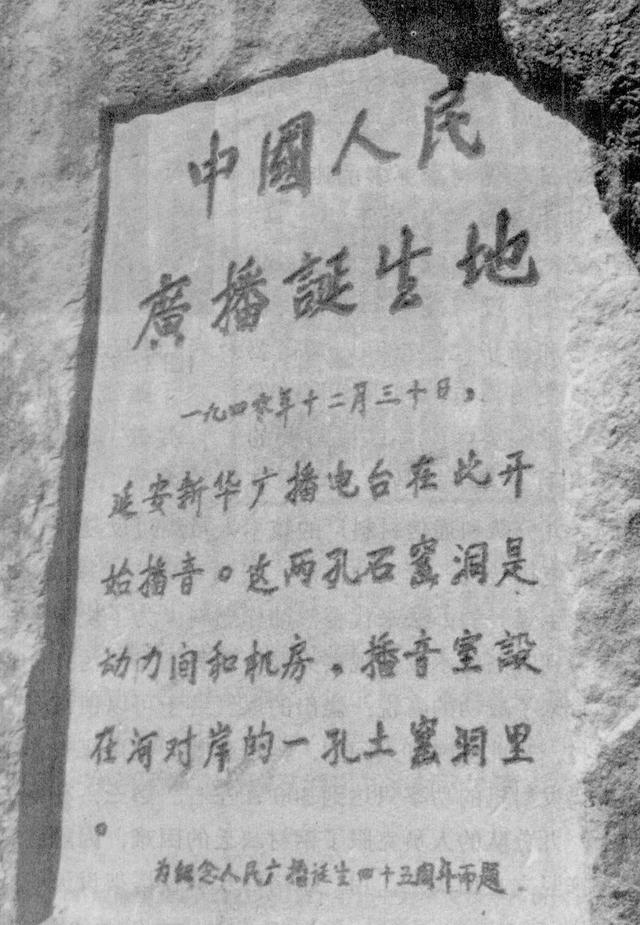 中國人民
廣播誕生地
一九四零年十二月三十日，
延安新华广播电台在此开
始播音。这两孔石窰洞是
动力间和机房，播音室設
在河对岸的一孔土窰洞里
。
为纪念人民广播诞生四十五周年而题